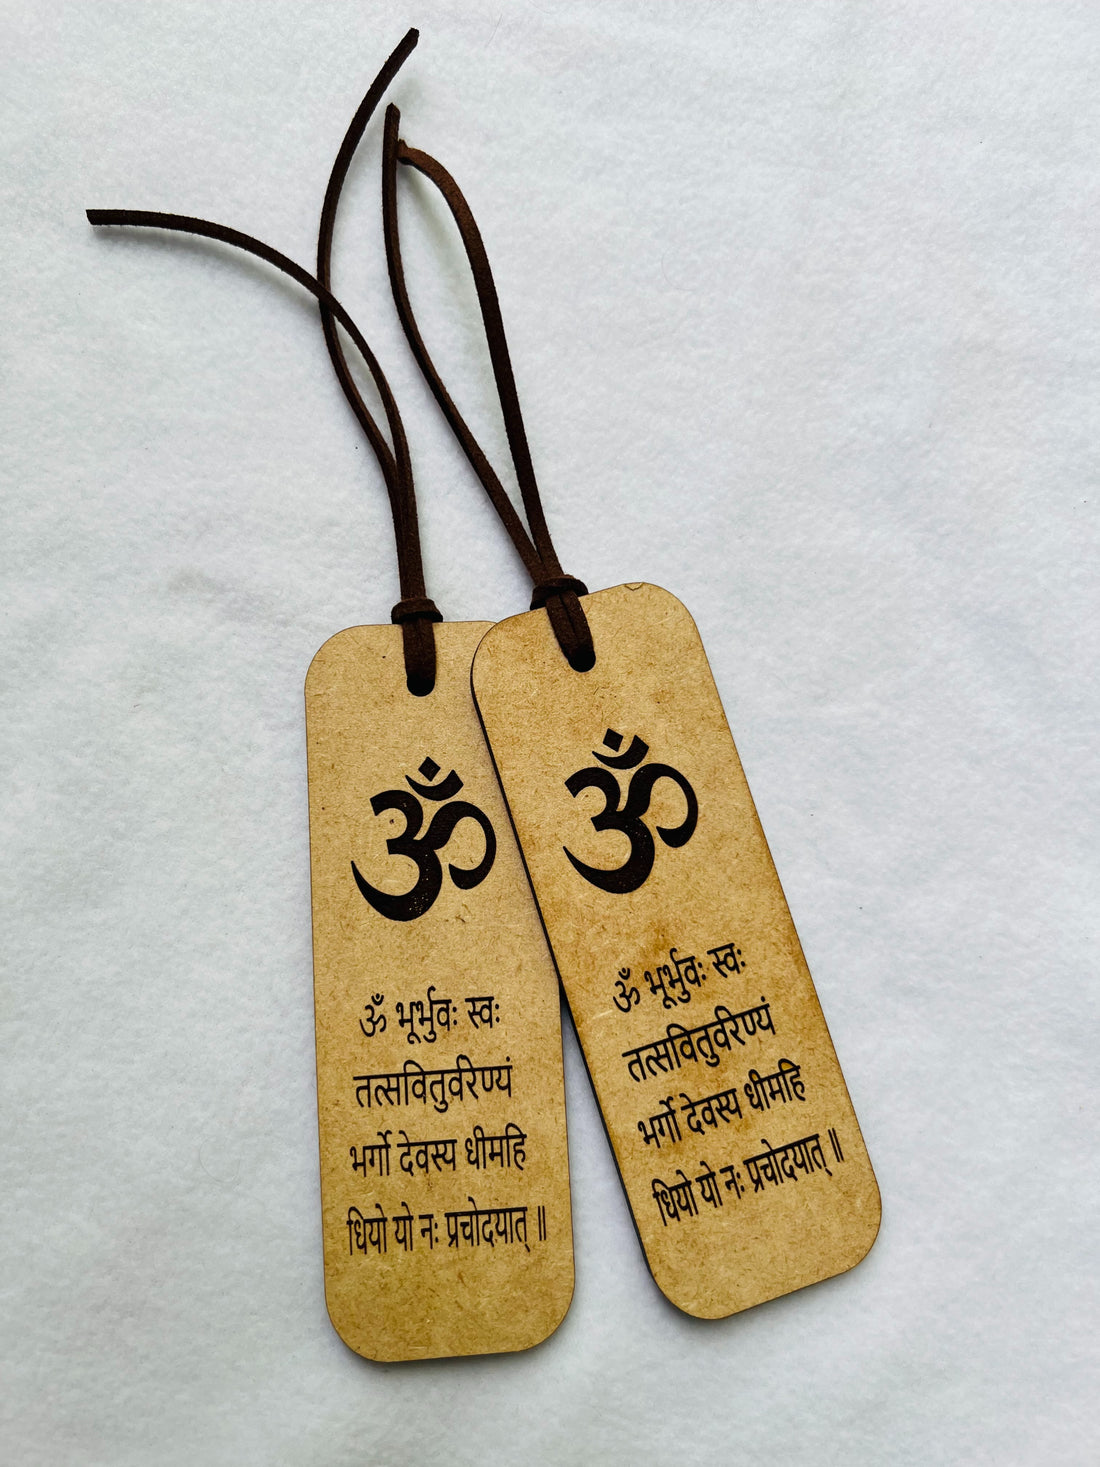 ॐ
ॐ भूर्भुवः स्वः
तत्सवितुर्वरेण्यं
भर्गो देवस्य धीमहि
धियो यो नः प्रचोदयात् ॥
ॐ
ॐ भूर्भुवः स्वः
तत्सवितुर्वरेण्यं
भर्गो देवस्य धीमहि
धियो यो नः प्रचोदयात् ॥